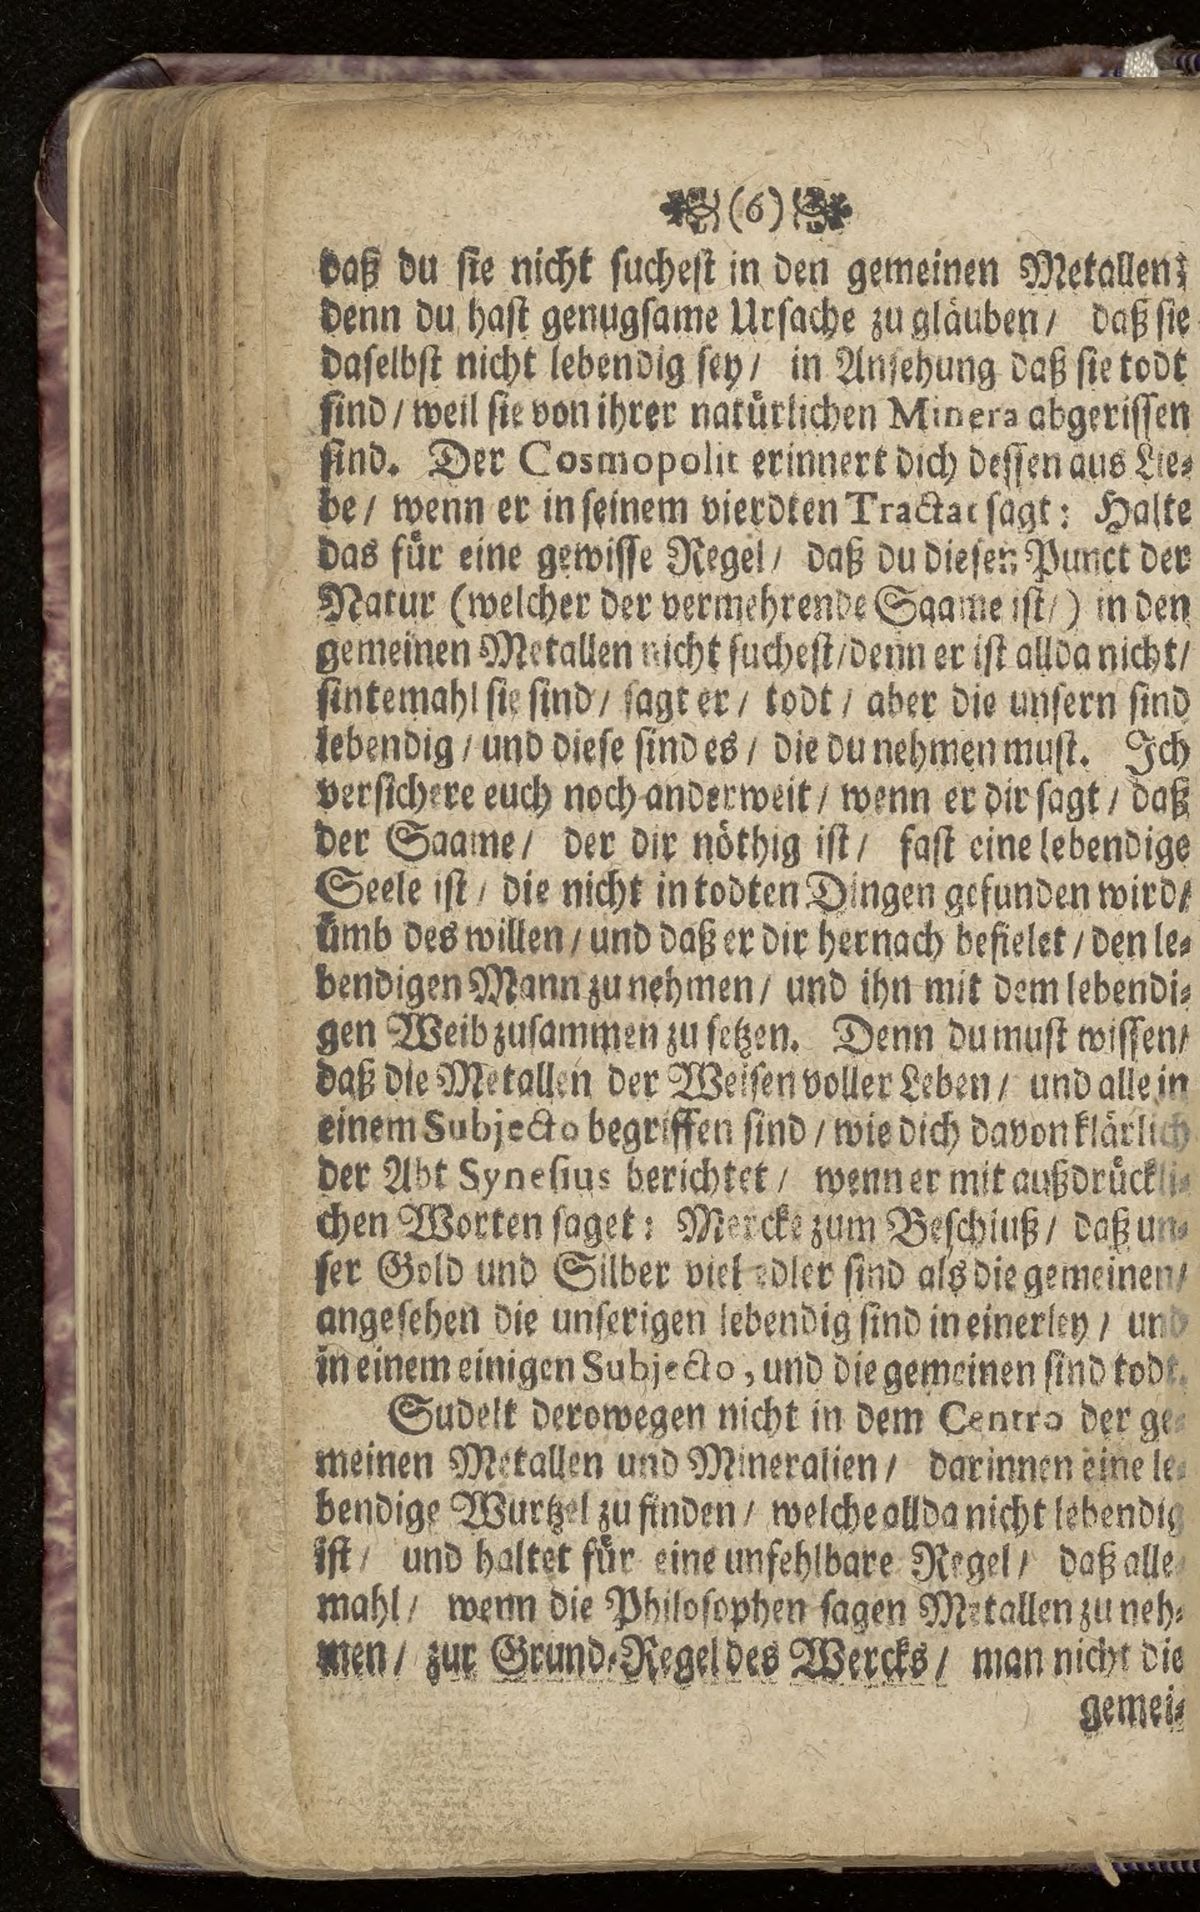 (6)
daß du sie nicht suchest in den gemeinen Metallen;
denn du hast genugsame Ursache zu gläuben / daß sie
daselbst nicht lebendig sey / in Ansehung daß sie todt
sind / weil sie von ihrer natürlichen Minera abgerissen
sind. Der Cosmopolit erinnert dich dessen aus Lie⸗
be / wenn er in seinem vierdten Tractat sagt: Halte
das für eine gewisse Regel / daß du diesen Punct der
Natur (welcher der vermehrende Saame ist /) in den
gemeinen Metallen nicht suchest / denn er ist allda nicht /
sintemahl sie sind / sagt er / todt / aber die unsern sind
lebendig / und diese sind es / die du nehmen must. Ich
versichere euch noch anderweit / wenn er dir sagt / daß
der Saame / der dir nöthig ist / fast eine lebendige
Seele ist / die nicht in todten Dingen gefunden wird /
ümb des willen / und daß er dir hernach befielet / den le⸗
bendigen Mann zu nehmen / und ihn mit dem lebendi⸗
gen Weib zusammen zu setzen. Denn du must wissen /
daß die Metallen der Weisen voller Leben / und alle in
einem Subjecto begriffen sind / wie dich davon klärlich
der Abt Synesius berichtet / wenn er mit außdrückli⸗
chen Worten saget: Mercke zum Beschluß / daß un⸗
ser Gold und Silber viel edler sind als die gemeinen /
angesehen die unserigen lebendig sind in einerley / und
in einem einigen Subjecto, und die gemeinen sind todt.
Sudelt derowegen nicht in dem Centro der ge⸗
meinen Metallen und Mineralien / darinnen eine le⸗
bendige Wurtzel zu finden / welche allda nicht lebendig
ist / und haltet für eine unfehlbare Regel / daß alle⸗
mahl / wenn die Philosophen sagen Metallen zu neh⸗
men / zur Grund⸗Regel des Wercks / man nicht die
gemei⸗